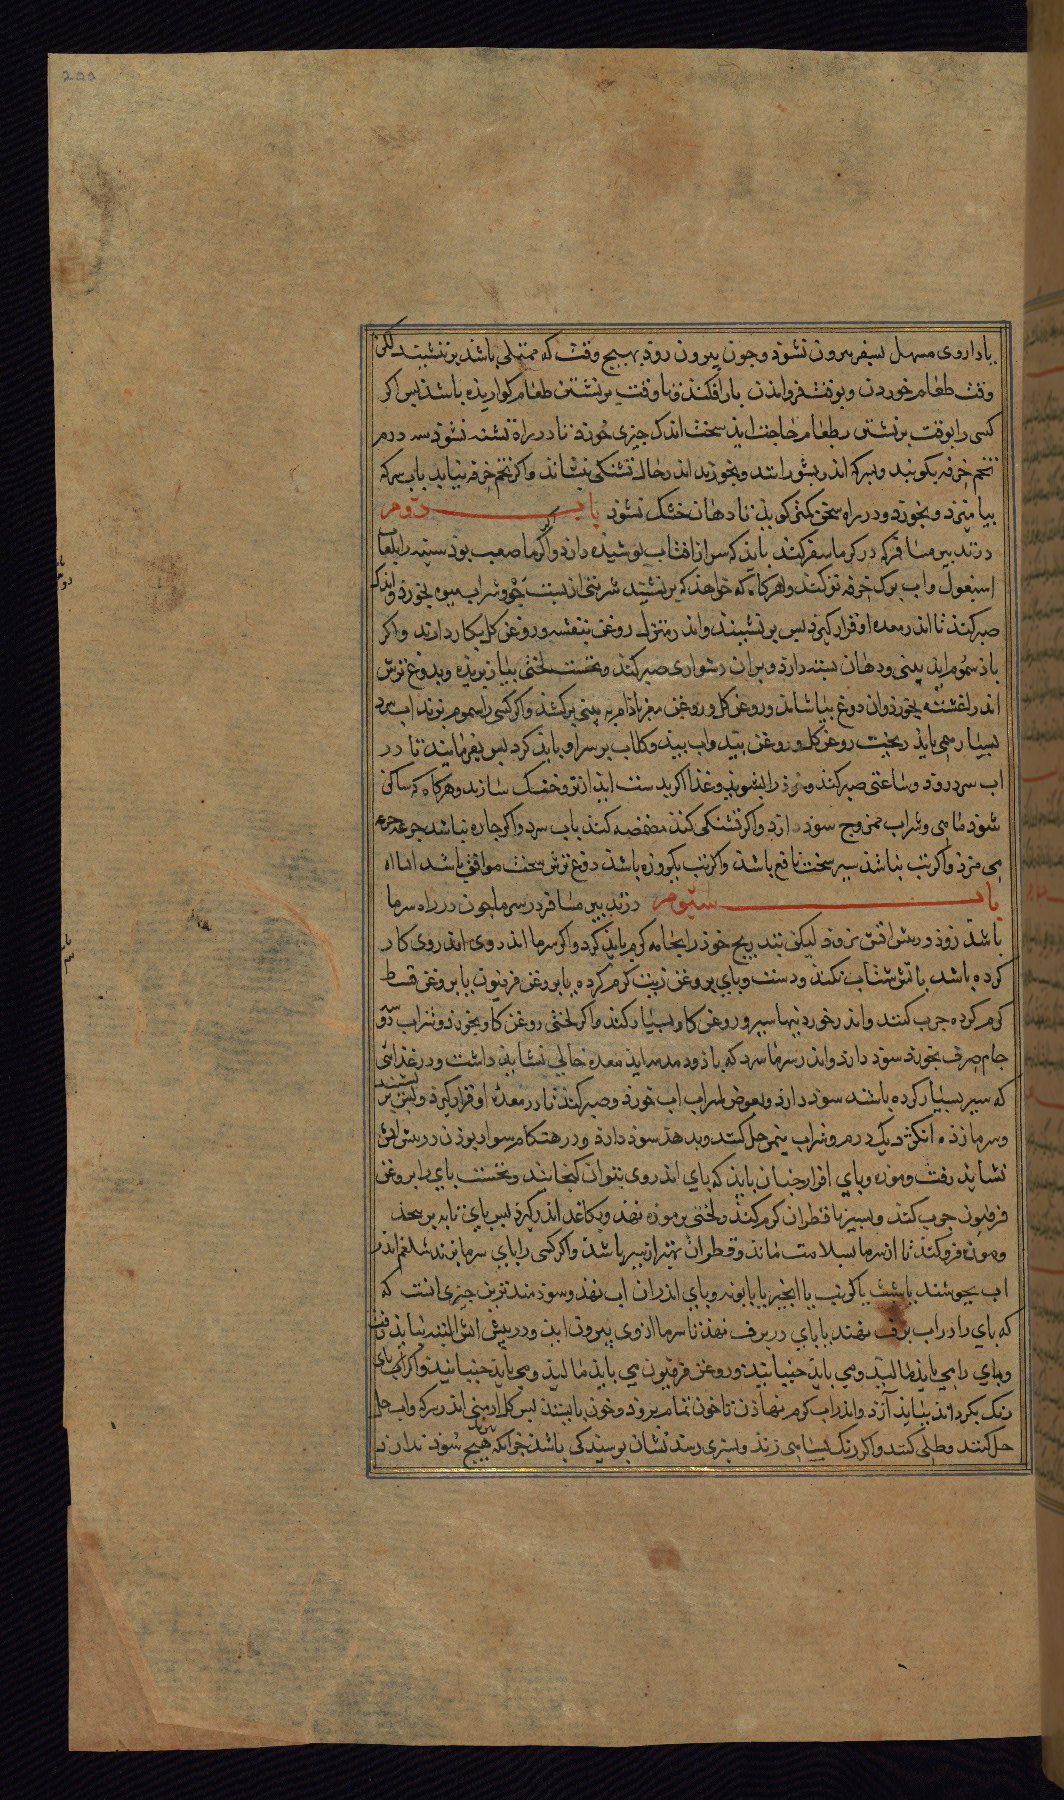 یا داروی مسهل بسفر بیرون نشوذ و چون بیرون روذ بهیچ وقت که ممتلی باشد برننشیند لکن
وقت طعام خوردن و بوقت فرواذن بار افکند تا وقت برنشستن طعام کواریذه باشد بس اکر
کسی را بوقت برنشستن بطعام حاجت ایذ سخت اندک چیزی خورذ تا در راه تشنه نشوذ سه درم
تخم خرفه بکوبند و بسرکه اندر بشورانند و بخورند اندر حال تشنکی بنشاند و اکر تخم خرفه نیابد باب سرکه
بیامیزد و بخورد و در راه سخن کمتر کوید تا دهان خشک نشوذ باب دوم
در تدبیر مسافر که در کرما سفر کند بایذ که سر از افتاب بوشیذه دارد و اکر کرما صعب بوذ سینه را بلعاب
اسبغول و اب برک خرفه تر کند و هرکاه که خواهذ که برنشیند شربتی از بست جو و شراب میوه بخورد و اندک
صبر کند تا اندر معده او قرار کیرذ بس برنشیند و اندر منزل روغن بنفشه و روغن کل بکار دارند و اکر
باذ سموم ایذ بینی و دهان بسته دارد و بران دشواری صبر کند و نخست لختی بیاز بریذه و بدوغ ترش
اندر اغشته بخورذ و ان دوغ بیاشامذ و روغن کل و روغن مغز باذام به بینی برکشذ و اکر کسی را سموم بزند اب سرد
بسیار همی بایذ ریخت روغن کل و روغن بید و اب بید و کلاب بر سر او بایذ کرد بس بفرمایند تا در
اب سرد روذ و ساعتی صبر کند و خوذ را بشویذ و غذا اکر بدست ایذ از تره خنک سازند و هرکاه که ساکن
شوذ ماهی و شراب ممزوج سوذ دارد و اکر تشنکی کند مضمضه کند باب سرد و اکر چاره نباشد جرعه جرعه
می مزد و اکر تب نباشذ سیر سخت نافع باشذ و اکر تب یکروزه باشذ دوغ ترش سخت موافق باشد
باب سیوم در تدبیر مسافر در سرما چون در راه سرما
باشد زوذ در بیش اتش نروذ لیکن بتدریج خوذ را بجامه کرم بایذ کرد و اکر سرما اندر وی اندر وی کار
کرده باشد باتش شتاب نکند و دست و بای بروغن زیت کرم کرده یا بروغن فرفیون یا بروغن قسط
کرم کرده چرب کنند و اندر خوردنیها سیر و روغن کاو بسیار کند و اکر لختی روغن کاو بخورد و شراب دو
جام صرف بخورد سوذ دارد و اندر سرما سرد که باذ ود مدمه ایذ معده خالی نشاید داشت و در غذائی
که سیر بسیار کرده باشد سوذ دارد و بعوض شراب اب خورد و صبر کند تا در معده او قرار کیرد و بس برنشیند
و سرمازده انکژد یک درم و شراب نیم من حل کنند و بدهند سوذ دارد و در هنکام سوار بوذن در بیش اتش
نشایذ رفت و موزه و بای افزار چنان بایذ که بای اندر وی بتوان کنجانید و نخست بای را بروغن
فرفیون چوب کند و بسیر یا قطران کرم کند و لختی بر موزه نهد و بکاغد اندر کیرد بس بای تابه بر بیچذ
و موزه فرو کند تا از سرما بسلامت ماند و قطران بهتر از سیر باشد و اکر کسی را بای سرما بزند شلغم اندر
اب بجوشند یا شبت یا کرنب یا انجیر یا بابونه و بای اندران اب نهذ و سوذمندترین چیزی انست که
که بای را در اب برف نهند یا بای در برف نهند تا سرما از وی بیرون ایذ و در بیش اتش البته نبایذ رفت
و بای را می بایذ مالید و می بایذ جنبانید و روغن فرفیون می بایذ مالید و می بایذ جنبانید و اکر این بای
رنک بکرداند ببایذ آزد و اندر اب کرم نهاذن تا خون تمام برود و خون باییستد بس کل ارمنی اندر سرکه و اب حل
حل کنند و طلی کنند و اکر رنک بسیاهی زند و بسبزی رسد نشان بوسیدکی باشد جز انکه هیچ سوذ ندارد